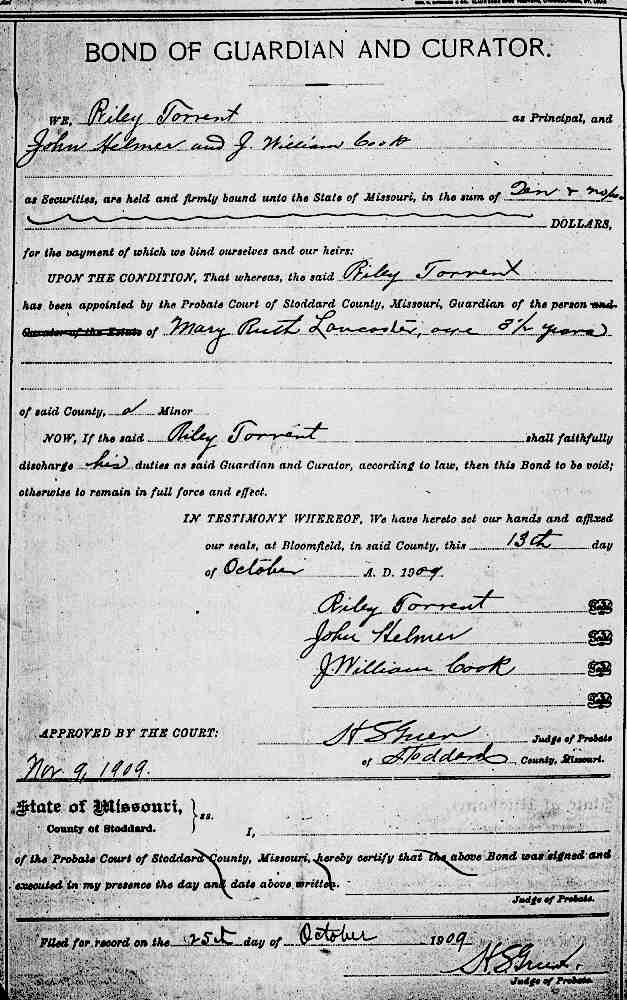 BOND OF GUARDIAN AND CURATOR.
WE, Riley Torrent as Principal, and
John Helmer and J. William Cook
as Securities, are held and firmly bound unto the State of Missouri, in the sum of Ten & no/100
DOLLARS,
for the payment of which we bind ourselves and our heirs:
UPON THE CONDITION, That whereas, the said Riley Torrent
has been appointed by the Probate Court of Stoddard County, Missouri, Guardian of the person and
Curator of the Estate of Mary Ruth Lancaster, age 3½ years
of said County, a Minor
NOW, If the said Riley Torrent shall faithfully
discharge his duties as said Guardian and Curator, according to law, then this Bond to be void;
otherwise to remain in full force and effect.
IN TESTIMONY WHEREOF, We have hereto set our hands and affixed
our seals, at Bloomfield, in said County, this 13th day
of October A. D. 1909.
Riley Torrent Seal
John Helmer Seal
J. William Cook Seal
Seal
APPROVED BY THE COURT: Judge of Probate
of Stoddard County, Missouri.
Nov. 9, 1909.
State of Missouri, } ss.
County of Stoddard.
I,
of the Probate Court of Stoddard County, Missouri, hereby certify that the above Bond was signed and
executed in my presence the day and date above written.
Judge of Probate.
Filed for record on the 25th day of October 1909
Judge of Probate.